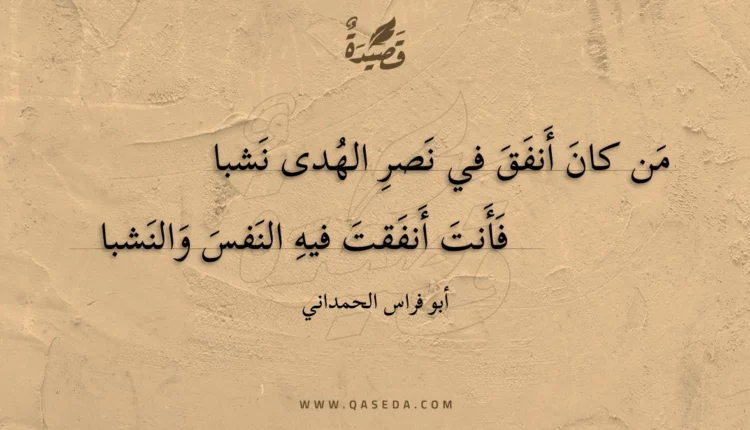 قَصِيْدَةٌ
مَن كانَ أَنفَقَ في نَصرِ الهُدى نَشبا
فَأَنتَ أَنفَقتَ فيهِ النَفسَ وَالنَشبا
أبو فراس الحمداني
WWW.QASEDA.COM